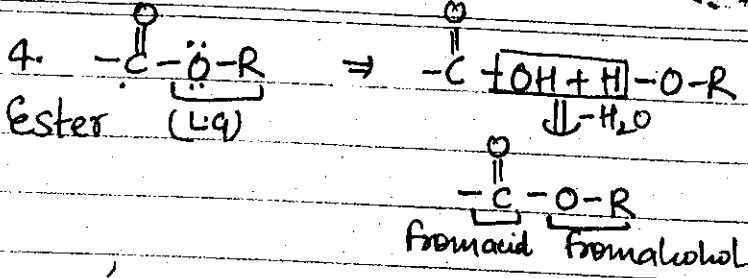 O O
4. -C-Ö-R ⇒ -C+OH+H-O-R
Ester (L.g) ⇓-H₂O
O
-C-O-R
from acid from alcohol